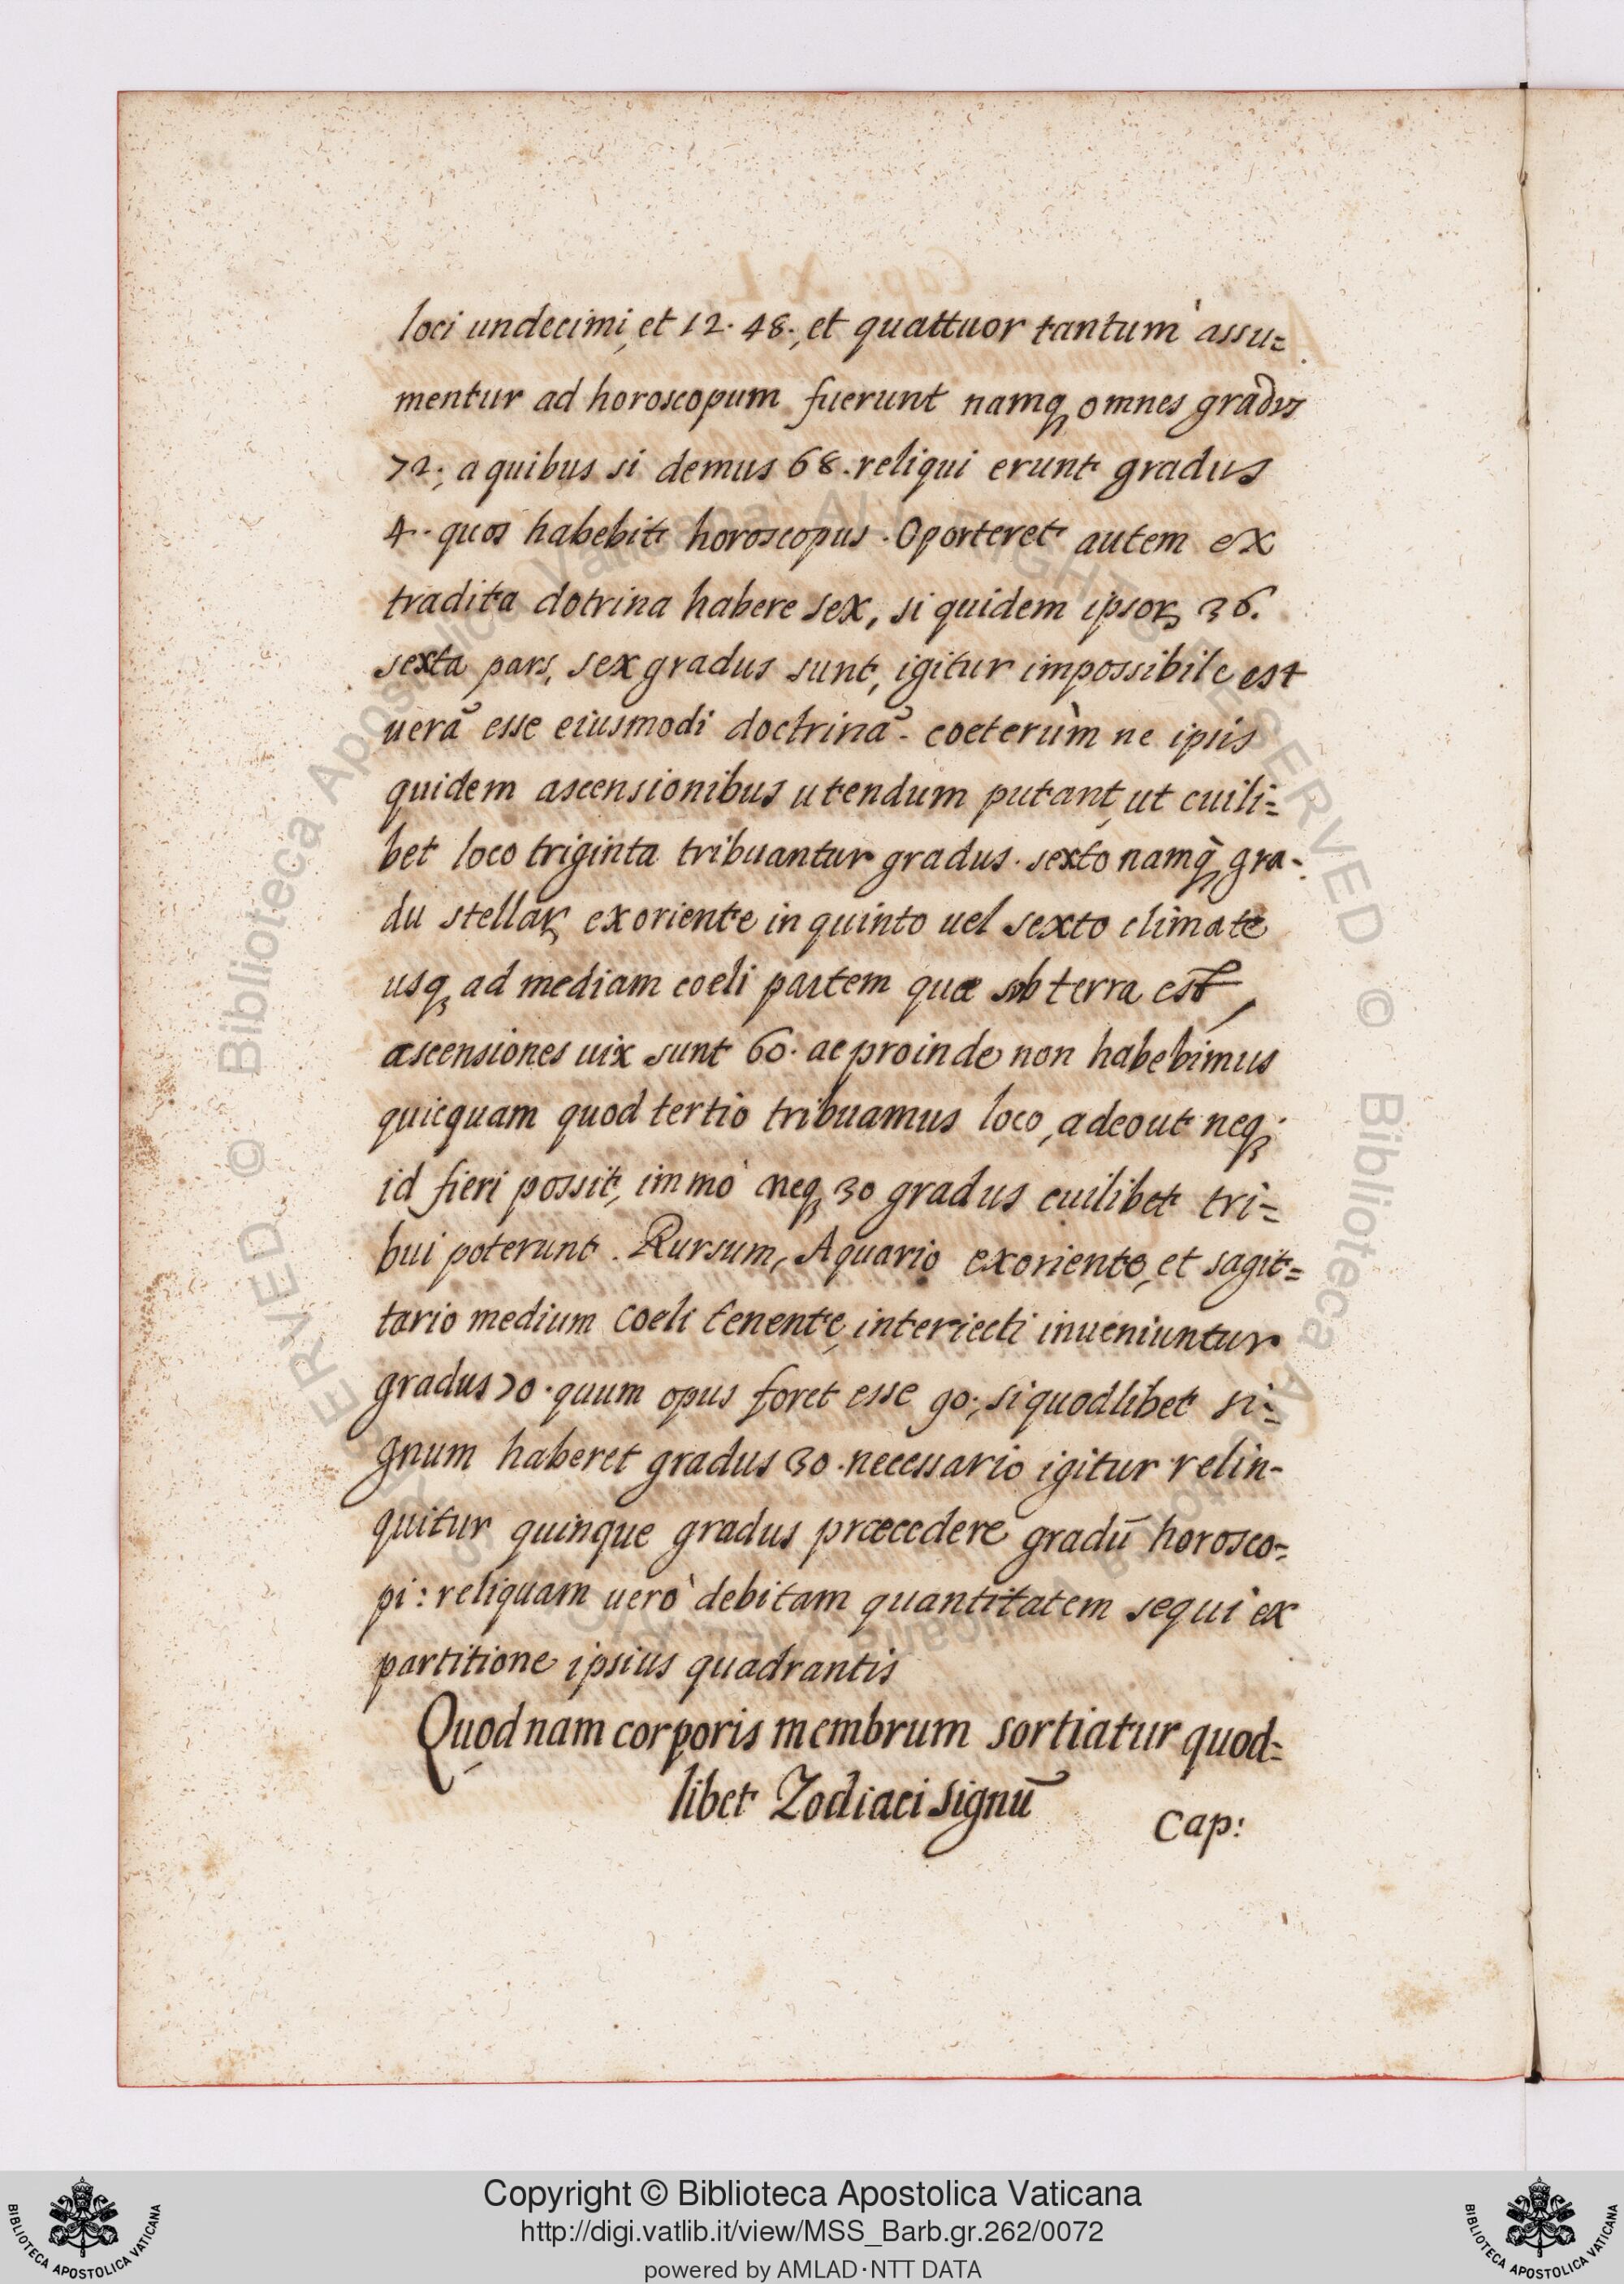 loci undecimi, et 12. 48., et quattuor tantum̀ assu=
mentur ad horoscopum fuerunt namq; omnes gradus
72; a quibus si demus 68. reliqui erunt gradus
4. quos habebit horoscopus. Oporteret autem ex
tradita dotrina habere sex, si quidem ipsoꝝ 36.
sexta pars, sex gradus sunt, igitur impossibile est
uerã esse eiusmodi doctrinã. coeterùm ne ipsis
quidem ascensionibus utendum putant, ut cuili=
bet loco triginta tribuantur gradus. sexto namq; gra-
du stellaꝝ exoriente in quinto uel sexto climate
usq; ad mediam coeli partem quæ sub terra est,
ascensiones uix sunt 60. ac proinde non habebimus
quicquam quod tertio tribuamus loco, adeout neq;
id fieri possit, immò neq; 30 gradus cuilibet tri=
bui poterunt. Rursum, Aquario exoriente, et sagit=
tario medium coeli tenente, interiecti inueniuntur
gradus 70. quum opus foret esse 90; si quodlibet si=
gnum haberet gradus 30. necessario igitur relin-
quitur quinque gradus præcedere gradũ horosco=
pi: reliquam uerò debitam quantitatem sequi ex
partitione ipsius quadrantis
Quodnam corporis membrum sortiatur quod=
libet Zodiaci signũ
Cap:
Copyright © Biblioteca Apostolica Vaticana
http://digi.vatlib.it/view/MSS_Barb.gr.262/0072
powered by AMLAD·NTT DATA
BIBLIOTECA APOSTOLICA VATICANA
BIBLIOTECA APOSTOLICA VATICANA